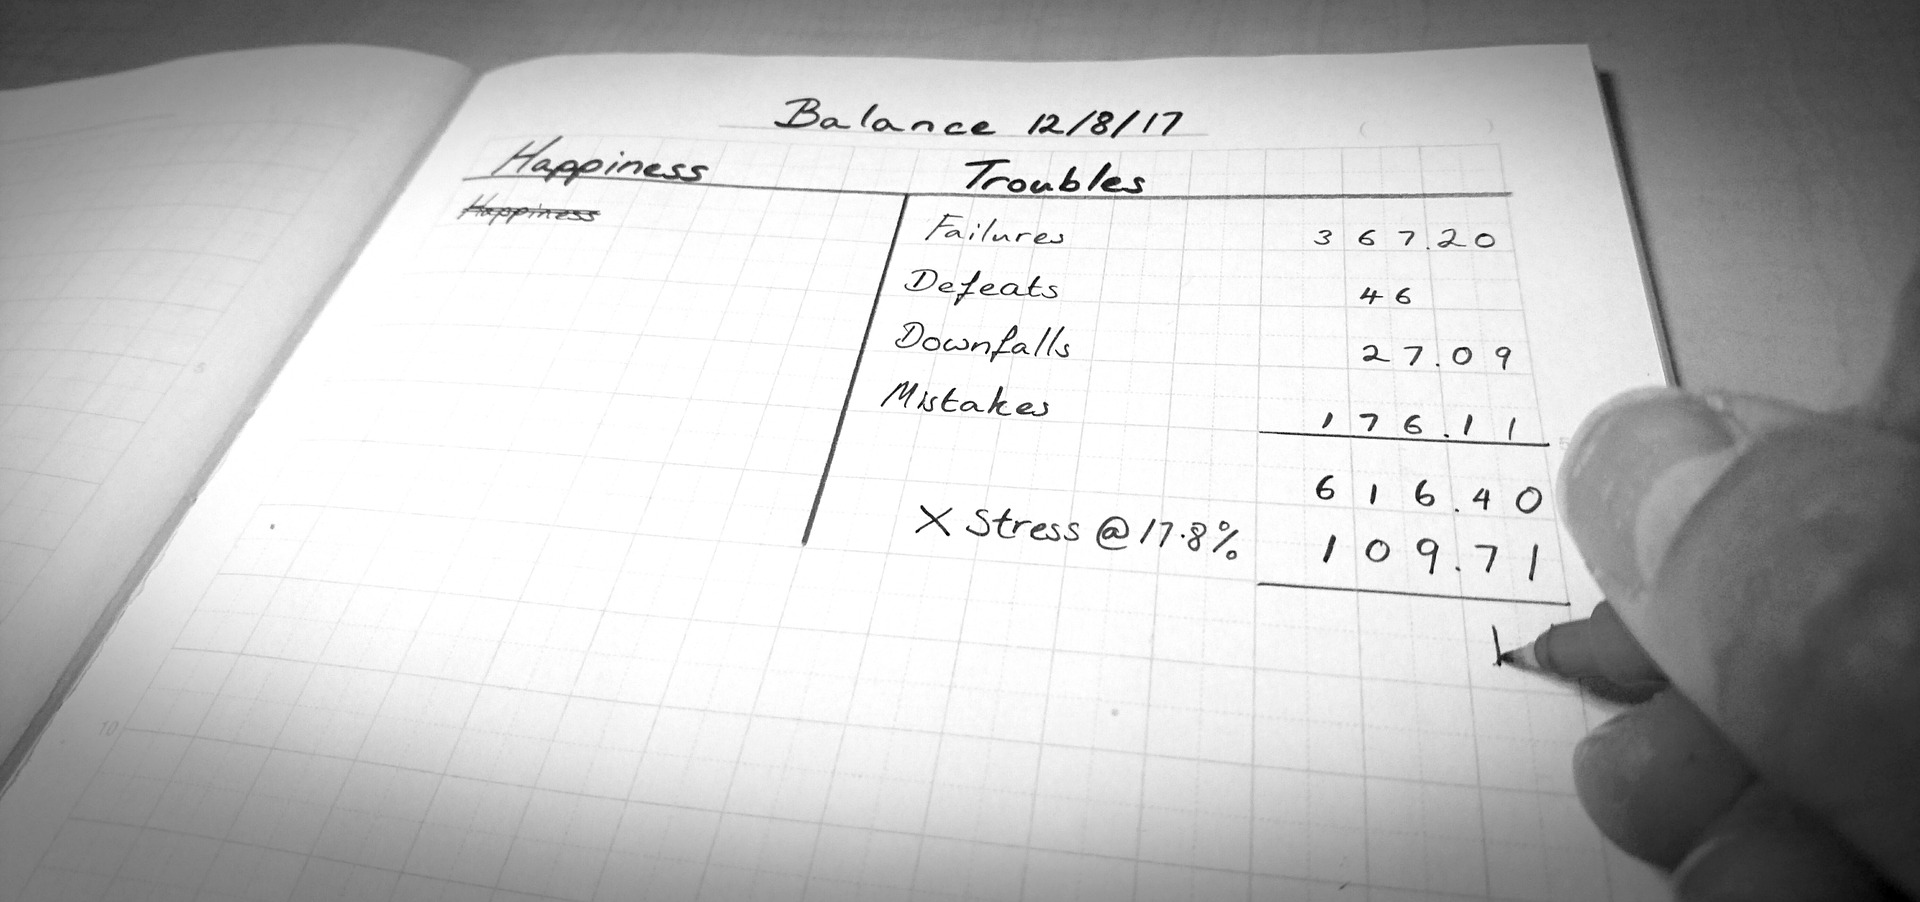 Balance 12/8/17
Happiness Troubles
Happiness
Failures 367.20
Defeats 46
Downfalls 27.09
Mistakes 176.11
616.40
X Stress @ 17.8% 109.71
1
10